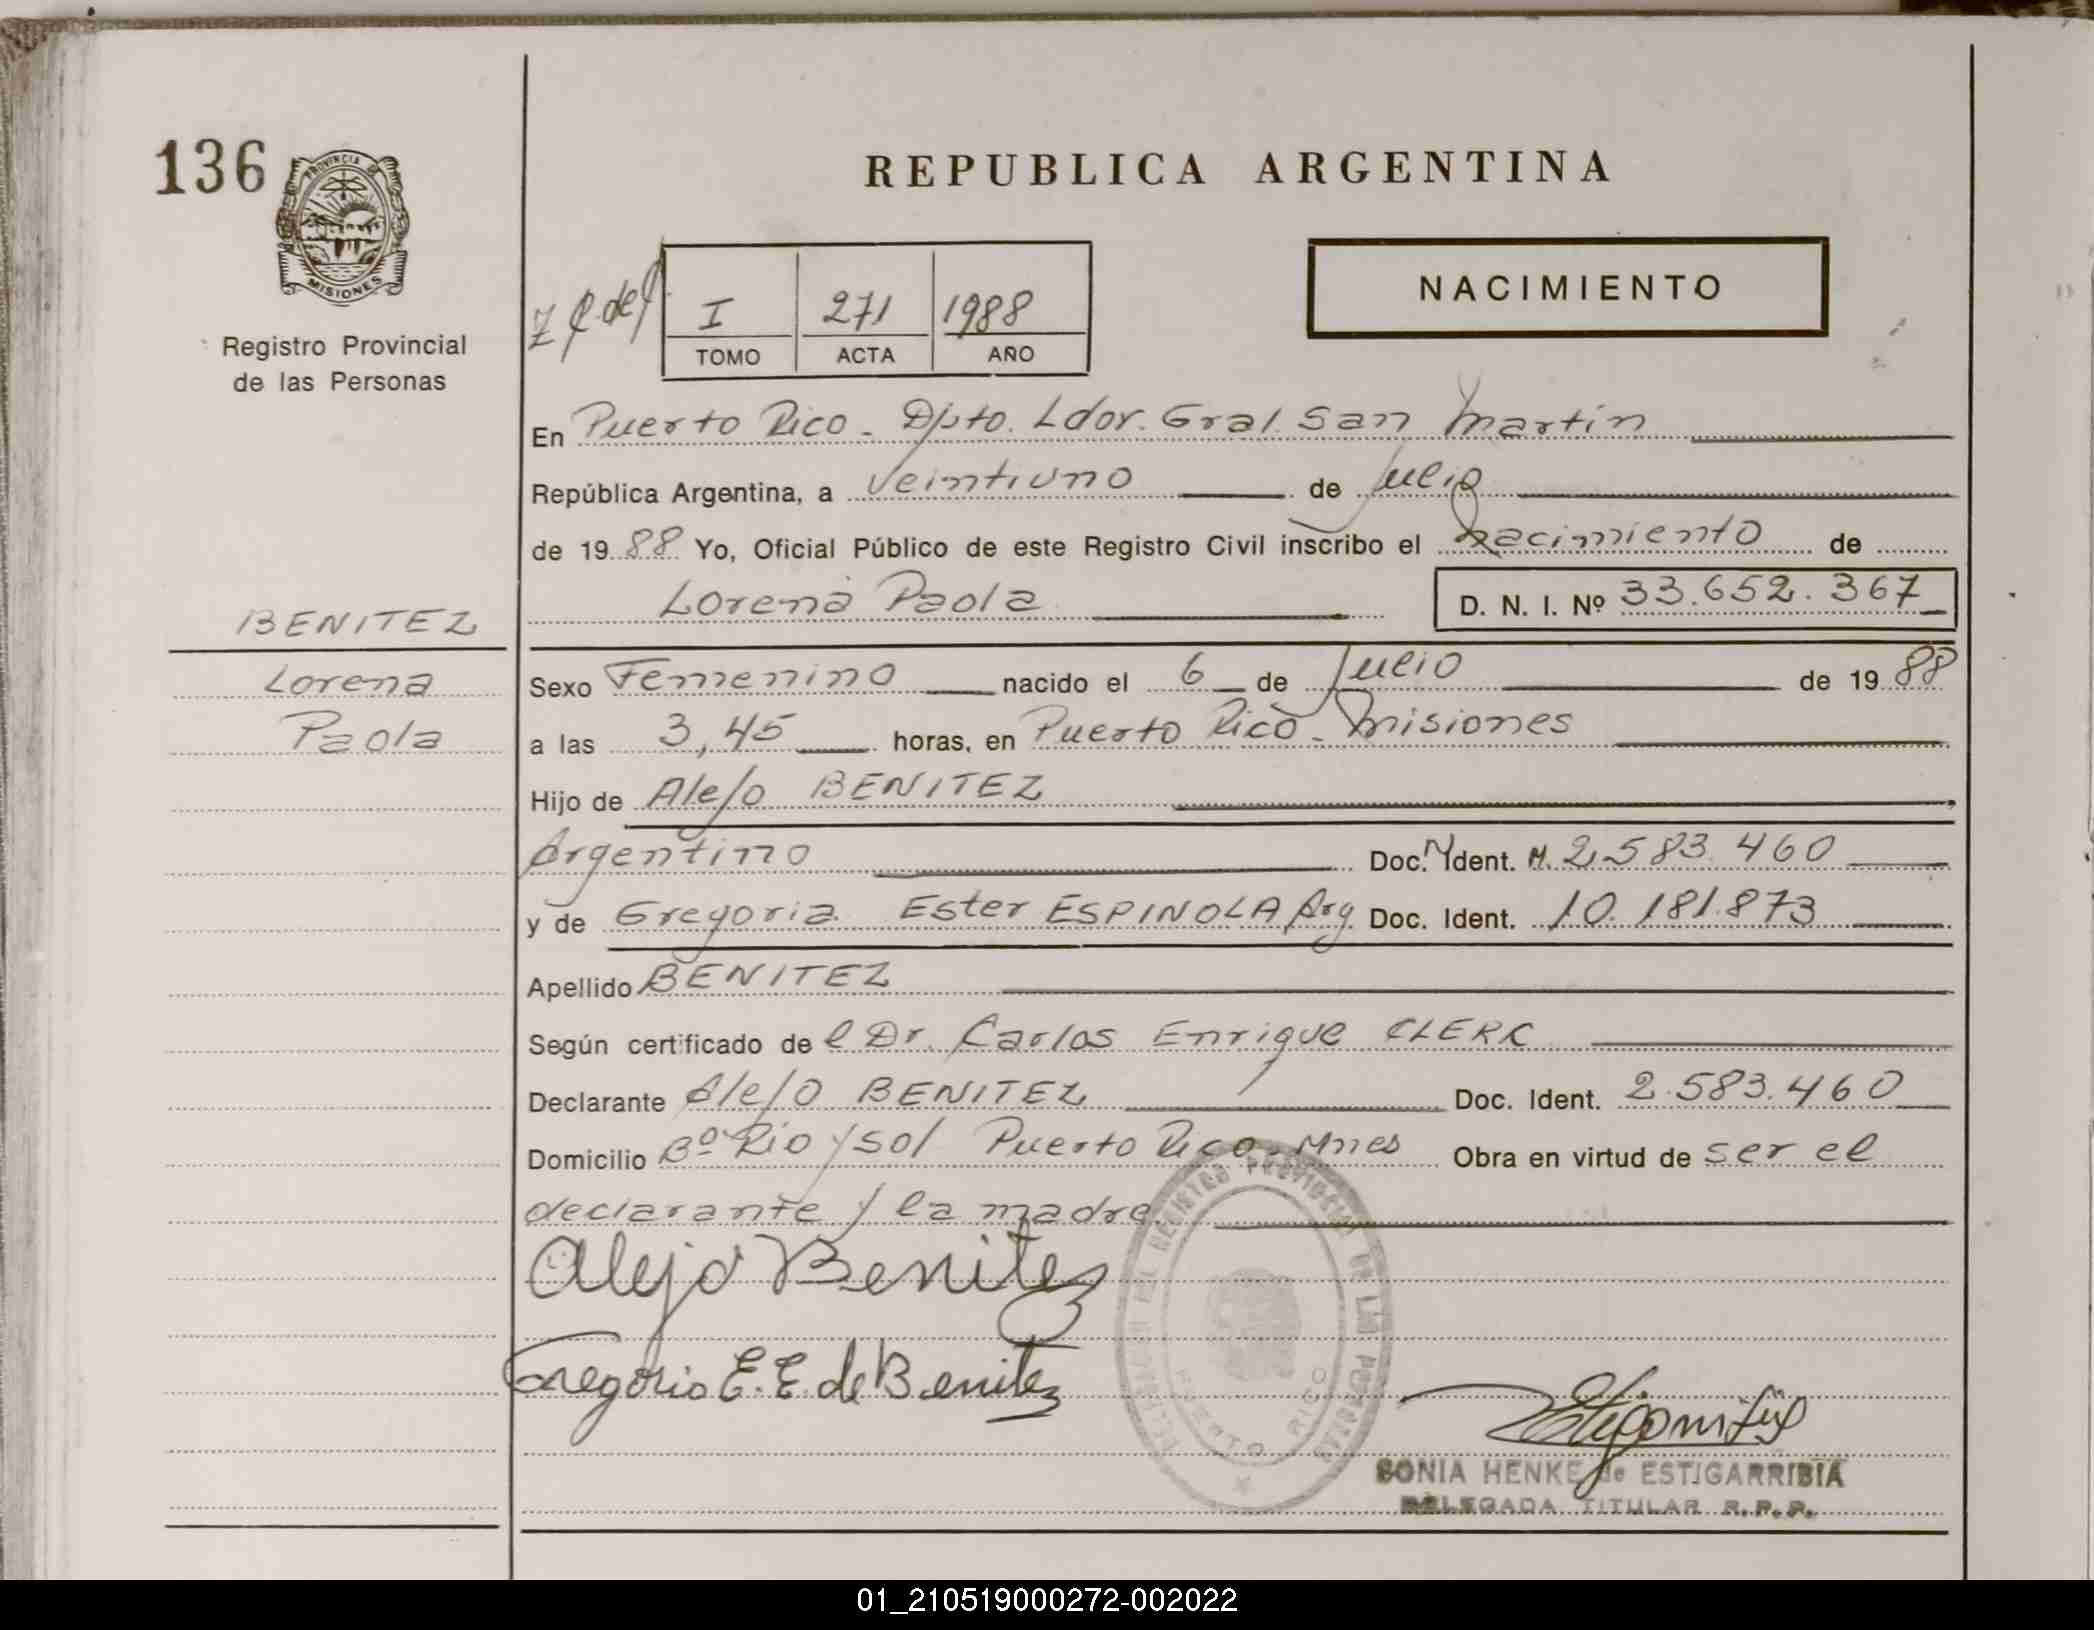 136
PROVINCIA DE
MISIONES
Registro Provincial
de las Personas
REPUBLICA ARGENTINA
NACIMIENTO
I 271 1988
TOMO ACTA AÑO
En Puerto Rico - Dpto. Ldor. Gral. San Martín
República Argentina, a veintiuno de Julio
de 1988 Yo, Oficial Público de este Registro Civil inscribo el nacimiento de
Lorena Paola D. N. I. Nº 33.652.367
BENITEZ
Lorena
Paola
Sexo Femenino nacido el 6 de Julio de 1988
a las 3,45 horas, en Puerto Rico - Misiones
Hijo de Alejo BENITEZ
Argentino Doc. Ident. M. 2.583.460
y de Gregoria Ester ESPINOLA Arg Doc. Ident. 10.181.873
Apellido BENITEZ
Según certificado de l Dr. Carlos Enrique CLERC
Declarante Alejo BENITEZ Doc. Ident. 2.583.460
Domicilio Bº Rio y Sol Puerto Rico - Mnes Obra en virtud de ser el
declarante y la madre
Alejo Benitez
Gregoria E. E. de Benitez
DELEGACION DEL REGISTRO PROVINCIAL DE LAS PERSONAS
PUERTO RICO
SONIA HENKE de ESTIGARRIBIA
DELEGADA TITULAR R.P.P.
01_210519000272-002022